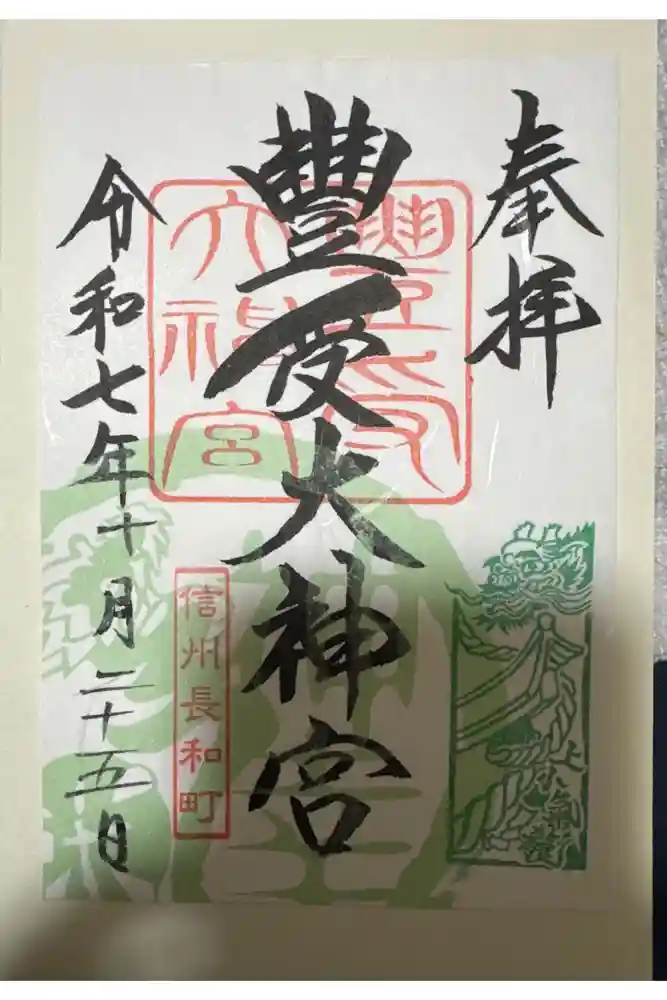 奉拝
豊受大神宮
豊受
大神宮
令和七年十月二十五日
信州長和町